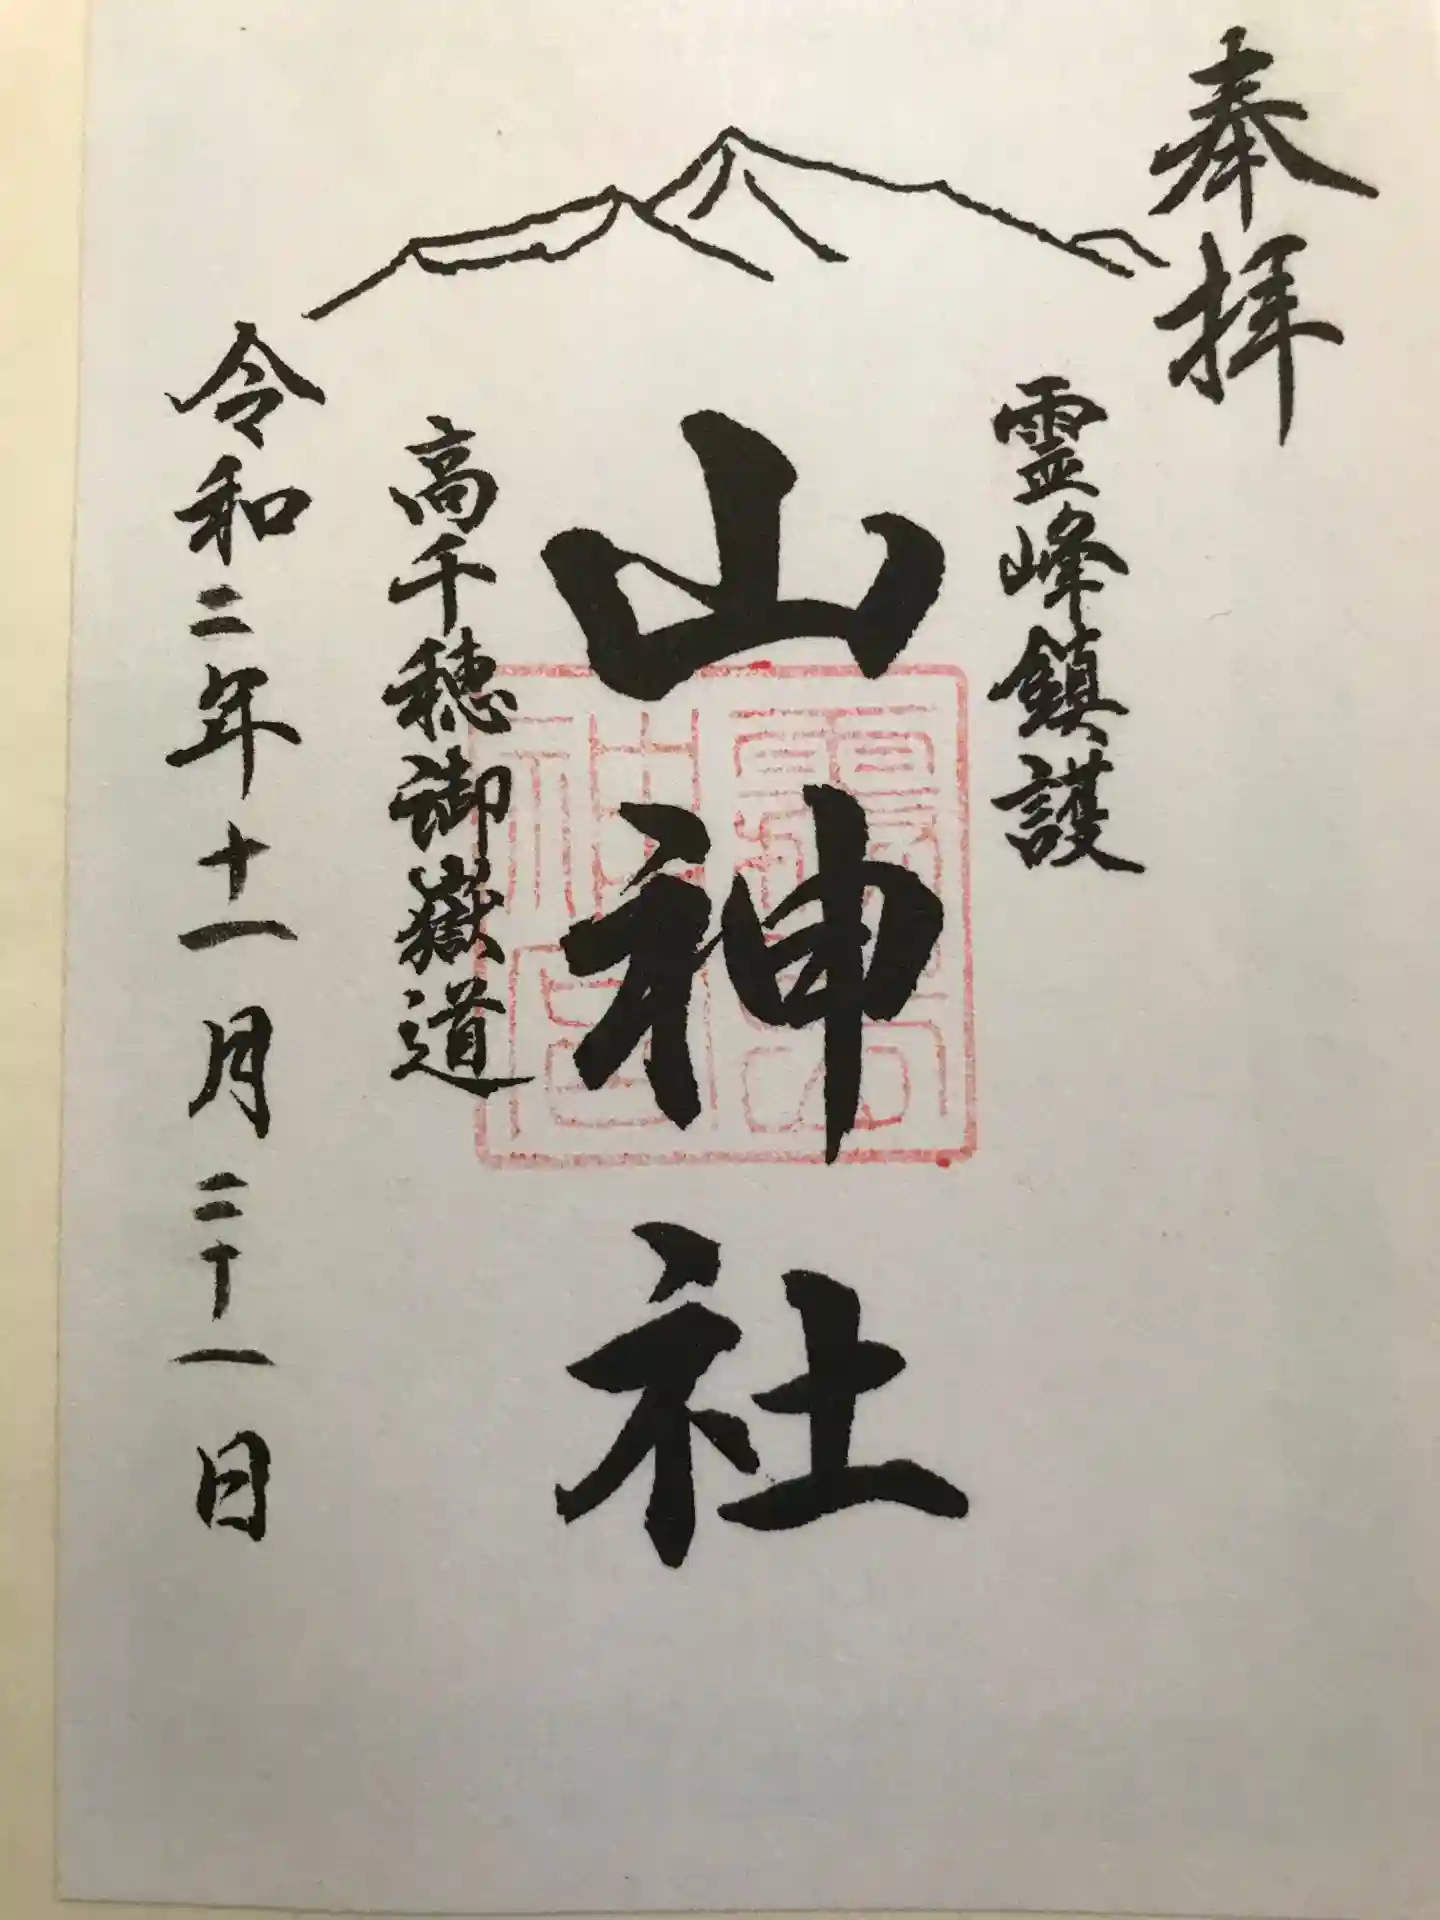 奉拝
霊峰鎮護
山神社
高千穂御嶽道
令和二年十一月二十一日